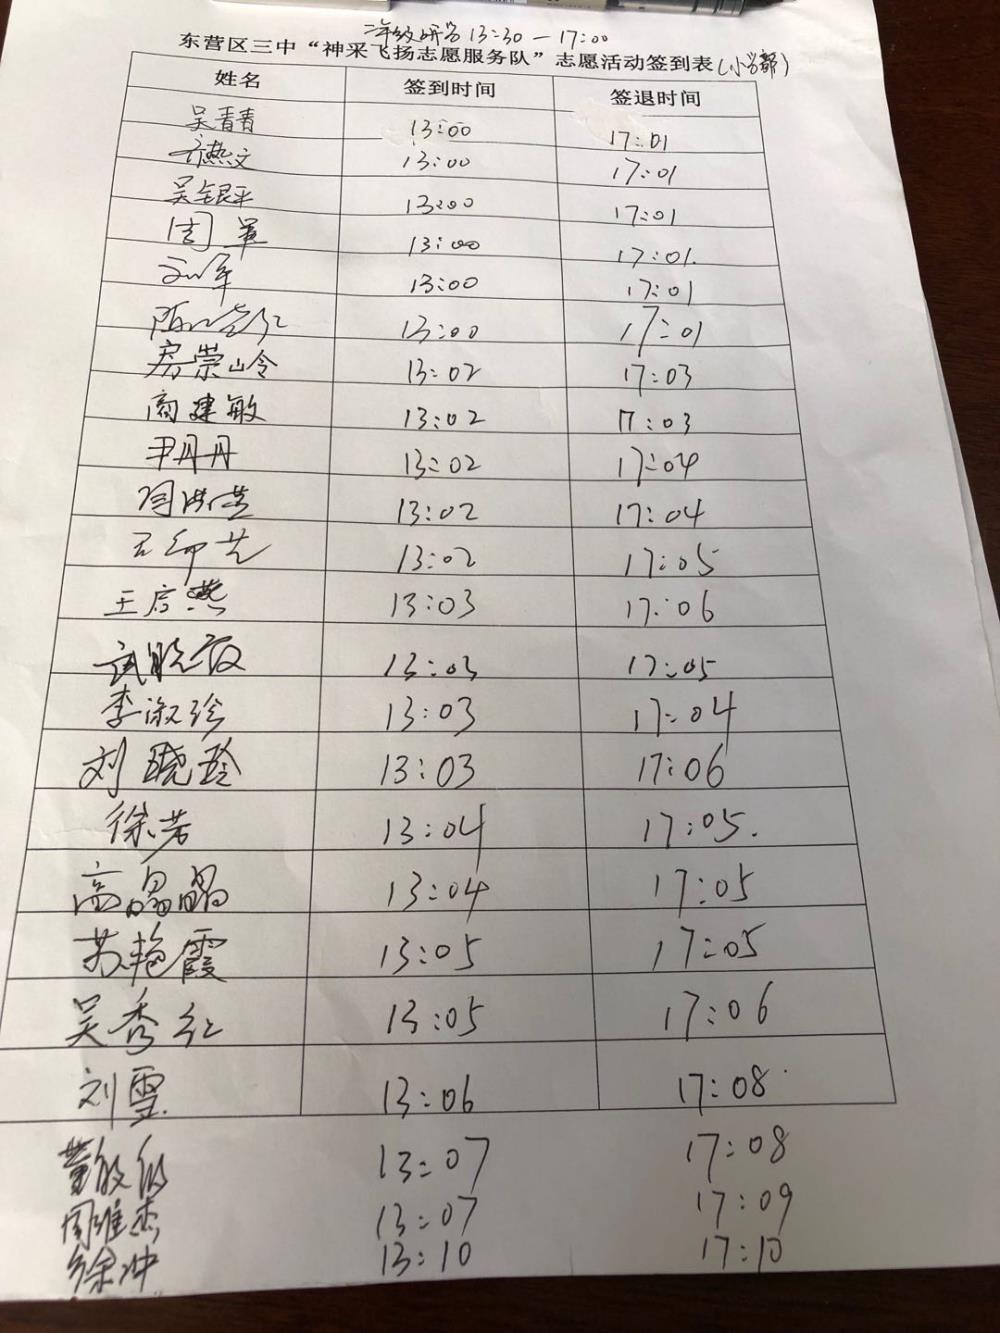 二年级研学13:30—17:00
东营区三中“神采飞扬志愿服务队”志愿活动签到表(小学部)
姓名 签到时间 签退时间
吴青青 13:00 17:01
13:00 17:01
吴银平 13:00 17:01
周军 13:00 17:01.
刘军 13:00 17:01
13:00 17:01
房崇岭 13:02 17:03
商建敏 13:02 17:03
尹丹丹 13:02 17:04
13:02 17:04
13:02 17:05
王启燕 13:03 17:06
武晓霞 13:03 17:05
李淑珍 13:03 17:04
刘晓玲 13:03 17:06
徐芳 13:04 17:05.
高晶晶 13:04 17:05
苏艳霞 13:05 17:05
吴秀红 13:05 17:06
刘雪 13:06 17:08
董敏 13:07 17:08
周维杰 13:07 17:09
徐冲 13:10 17:10